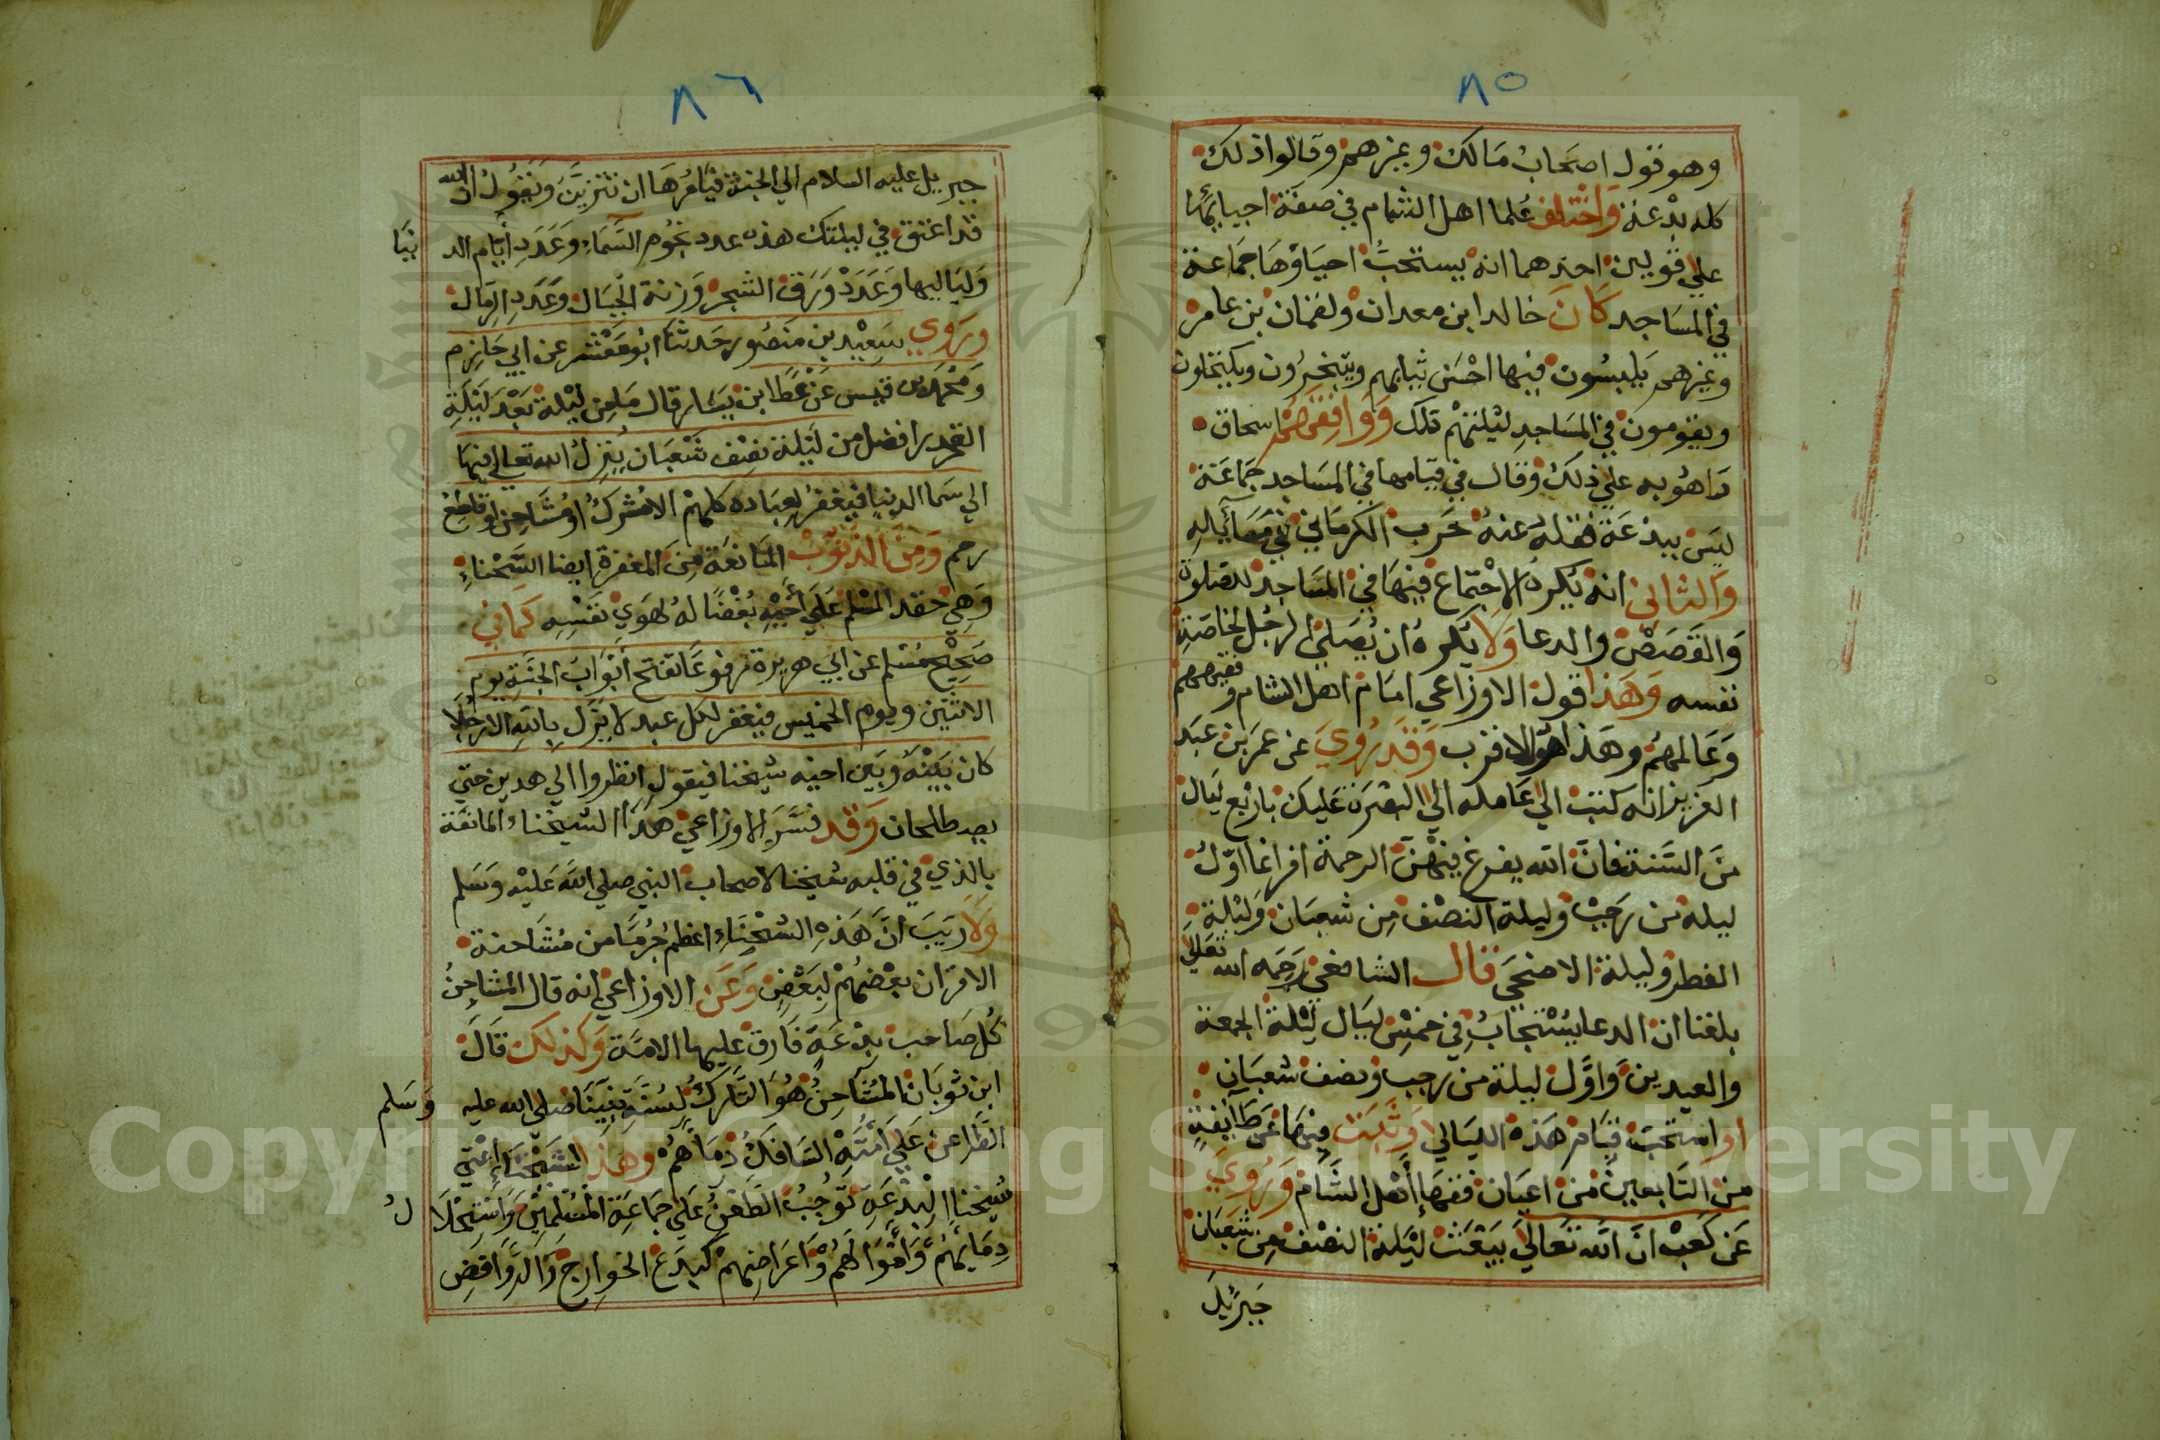 ٨٥
وهو قول اصحاب مالك وغيرهم وقالوا ذلك
كله بدعة واختلف علما اهل الشام في صفة احيائها
علي قولين احدهما انه يستحبُّ احياؤها جماعة
في المساجد كان خالد ابن معدان ولقمان بن عامر
وغيرهم يلبسون فيها احسن ثيابهم ويتبخرون ويكتحلون
ويقومون في المساجد ليلتهم تلك ووافقهم اسحاق
راهويه علي ذلك وقال في قيامها في المساجد جماعة
ليس ببدعة نقله عنه حرب الكرماني في مسائله
والثاني انه يكره الاجتماع فيها في المساجد للصلوة
والقصص والدعا ولا يكره ان يصلي الرجل لخاصة
نفسه وهذا قول الاوزاعي امام اهل الشام وفقيههم
وعالمهم وهذا هو الاقرب وقد روي عن عمر بن عبد
العزيز انه كتب الي عامله الي البصرة عليك باربع ليال
من السنة فان الله يفرغ فيهن الرحمة افراغا اول
ليلة من رجب وليلة النصف من شعبان وليلة
الفطر وليلة الاضحى قال الشافعي رحمه الله تعالي
بلغنا ان الدعا يستجاب في خمس ليال ليلة الجمعة
والعيدين واول ليلة من رجب ونصف شعبان
او استحب قيام هذه الليالي وثبت فيها عن طائفة
من التابعين من اعيان فقهاء أهل الشام وروي
عن كعب ان الله تعالي يبعث ليلة النصف من شعبان
جبريل
٨٦
جبريل عليه السلام الي الجنة فيامرها ان تتزين ويقول ان الله
قد اعتق في ليلتك هذه عدد نجوم السماء وعدد أيام الدنيا
ولياليها وعدد ورق الشجر وزنة الجبال وعدد الرمال
وروي سعيد بن منصور حدثنا ابو معشر عن ابي حازم
ومحمد بن قيس عن عطا ابن يسار قال ما من ليلة بعد ليلة
القدر افضل من ليلة نصف شعبان ينزل الله تعالي فيها
الي سما الدنيا فيغفر لعباده كلهم الا مشرك او مشاحن او قاطع
رحم ومن الذنوب المانعة من المغفرة ايضا الشحناء
وهي حقد المسلم علي أخيه بغضا له لهوي نفسه كما في
صحيح مسلم عن ابي هريرة مرفوعا تفتح أبواب الجنة يوم
الاثنين ويوم الخميس فيغفر لكل عبد لا يشرك بالله الا رجلا
كان بينه وبين اخيه شحنا فيقول انظروا الي هدين حتي
يصطلحان وقد فسر الاوزاعي هذا الشحناء المانعة
بالذي في قلبه شحنا لاصحاب النبي صلي الله عليه وسلم
ولا ريب ان هذه الشحناء اعظم جرما من مشاحنة
الاقران بعضهم لبعض وعن الاوزاعي انه قال المشاحن
كل صاحب بدعة فارق عليها الامة وكذلك قال
ابن ثوبان المشاحن هو التارك لسنة نبينا صلي الله عليه وسلم
الطاعن علي أمته السافك دماءهم وهذا الشحناء اعني
شحنا البدعة توجب الطعن علي جماعة المسلمين واستحلال
دمائهم واموالهم واعراضهم كبدع الخوارج والروافض